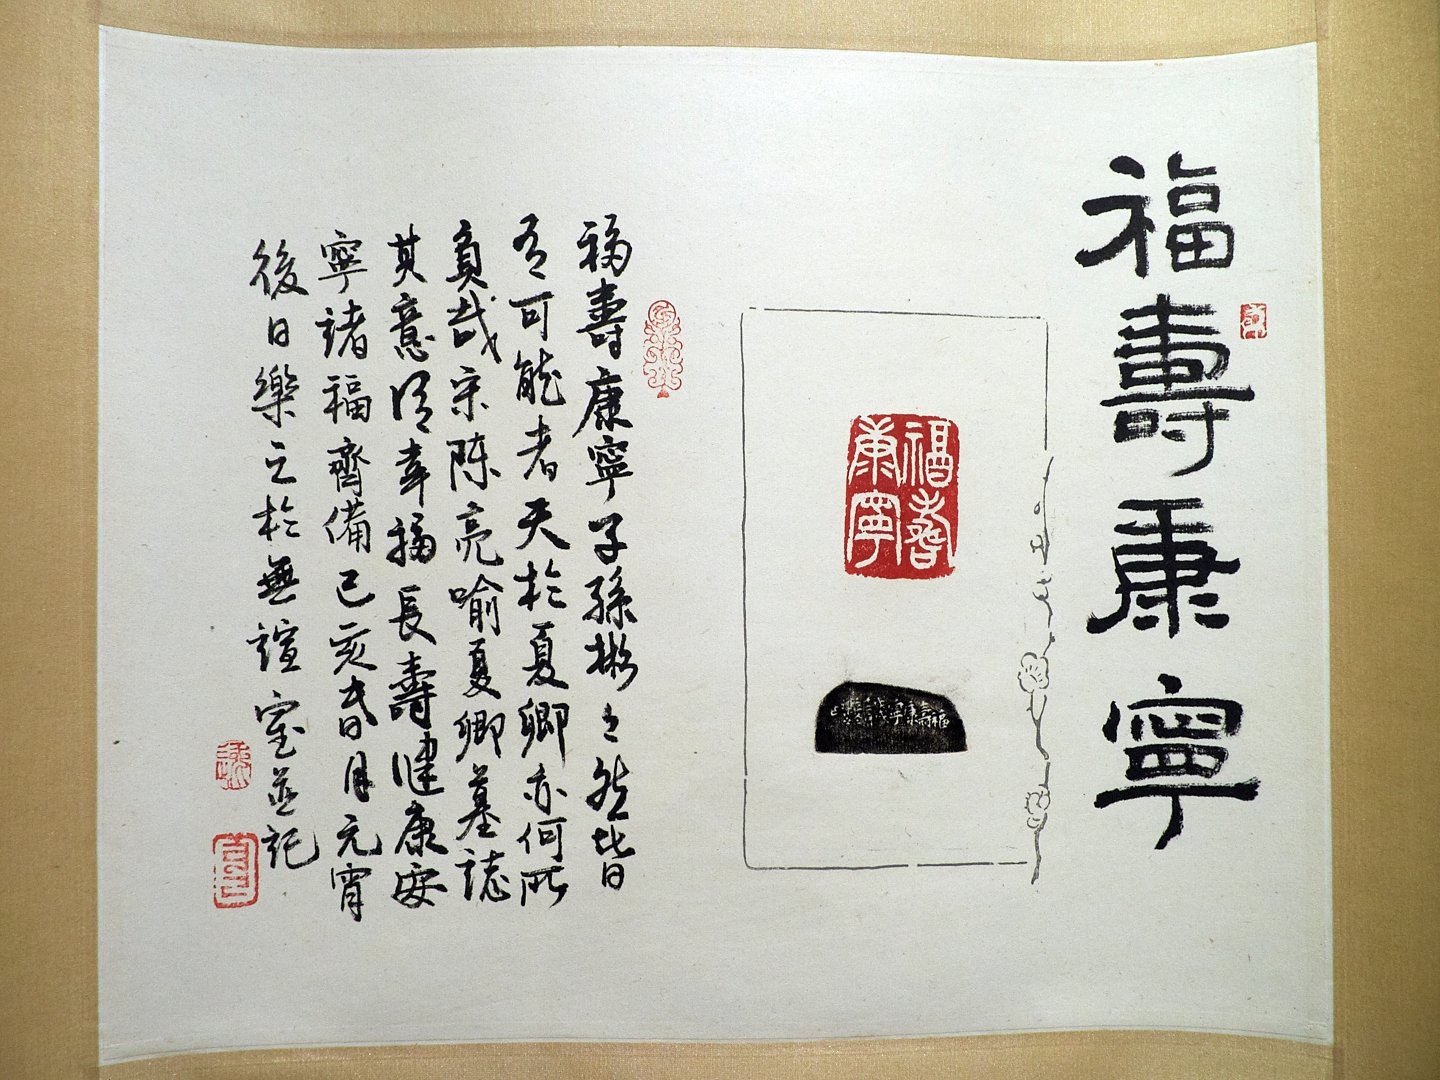 福壽康寧
福壽康寧
福壽康寧子孫彬彬然皆
有可能者天於夏卿亦何所
負哉宋陳亮喻夏卿墓誌
其意得幸福長壽健康安
寧諸福齊備己亥春月元宵
後日樂之於無諠室並記